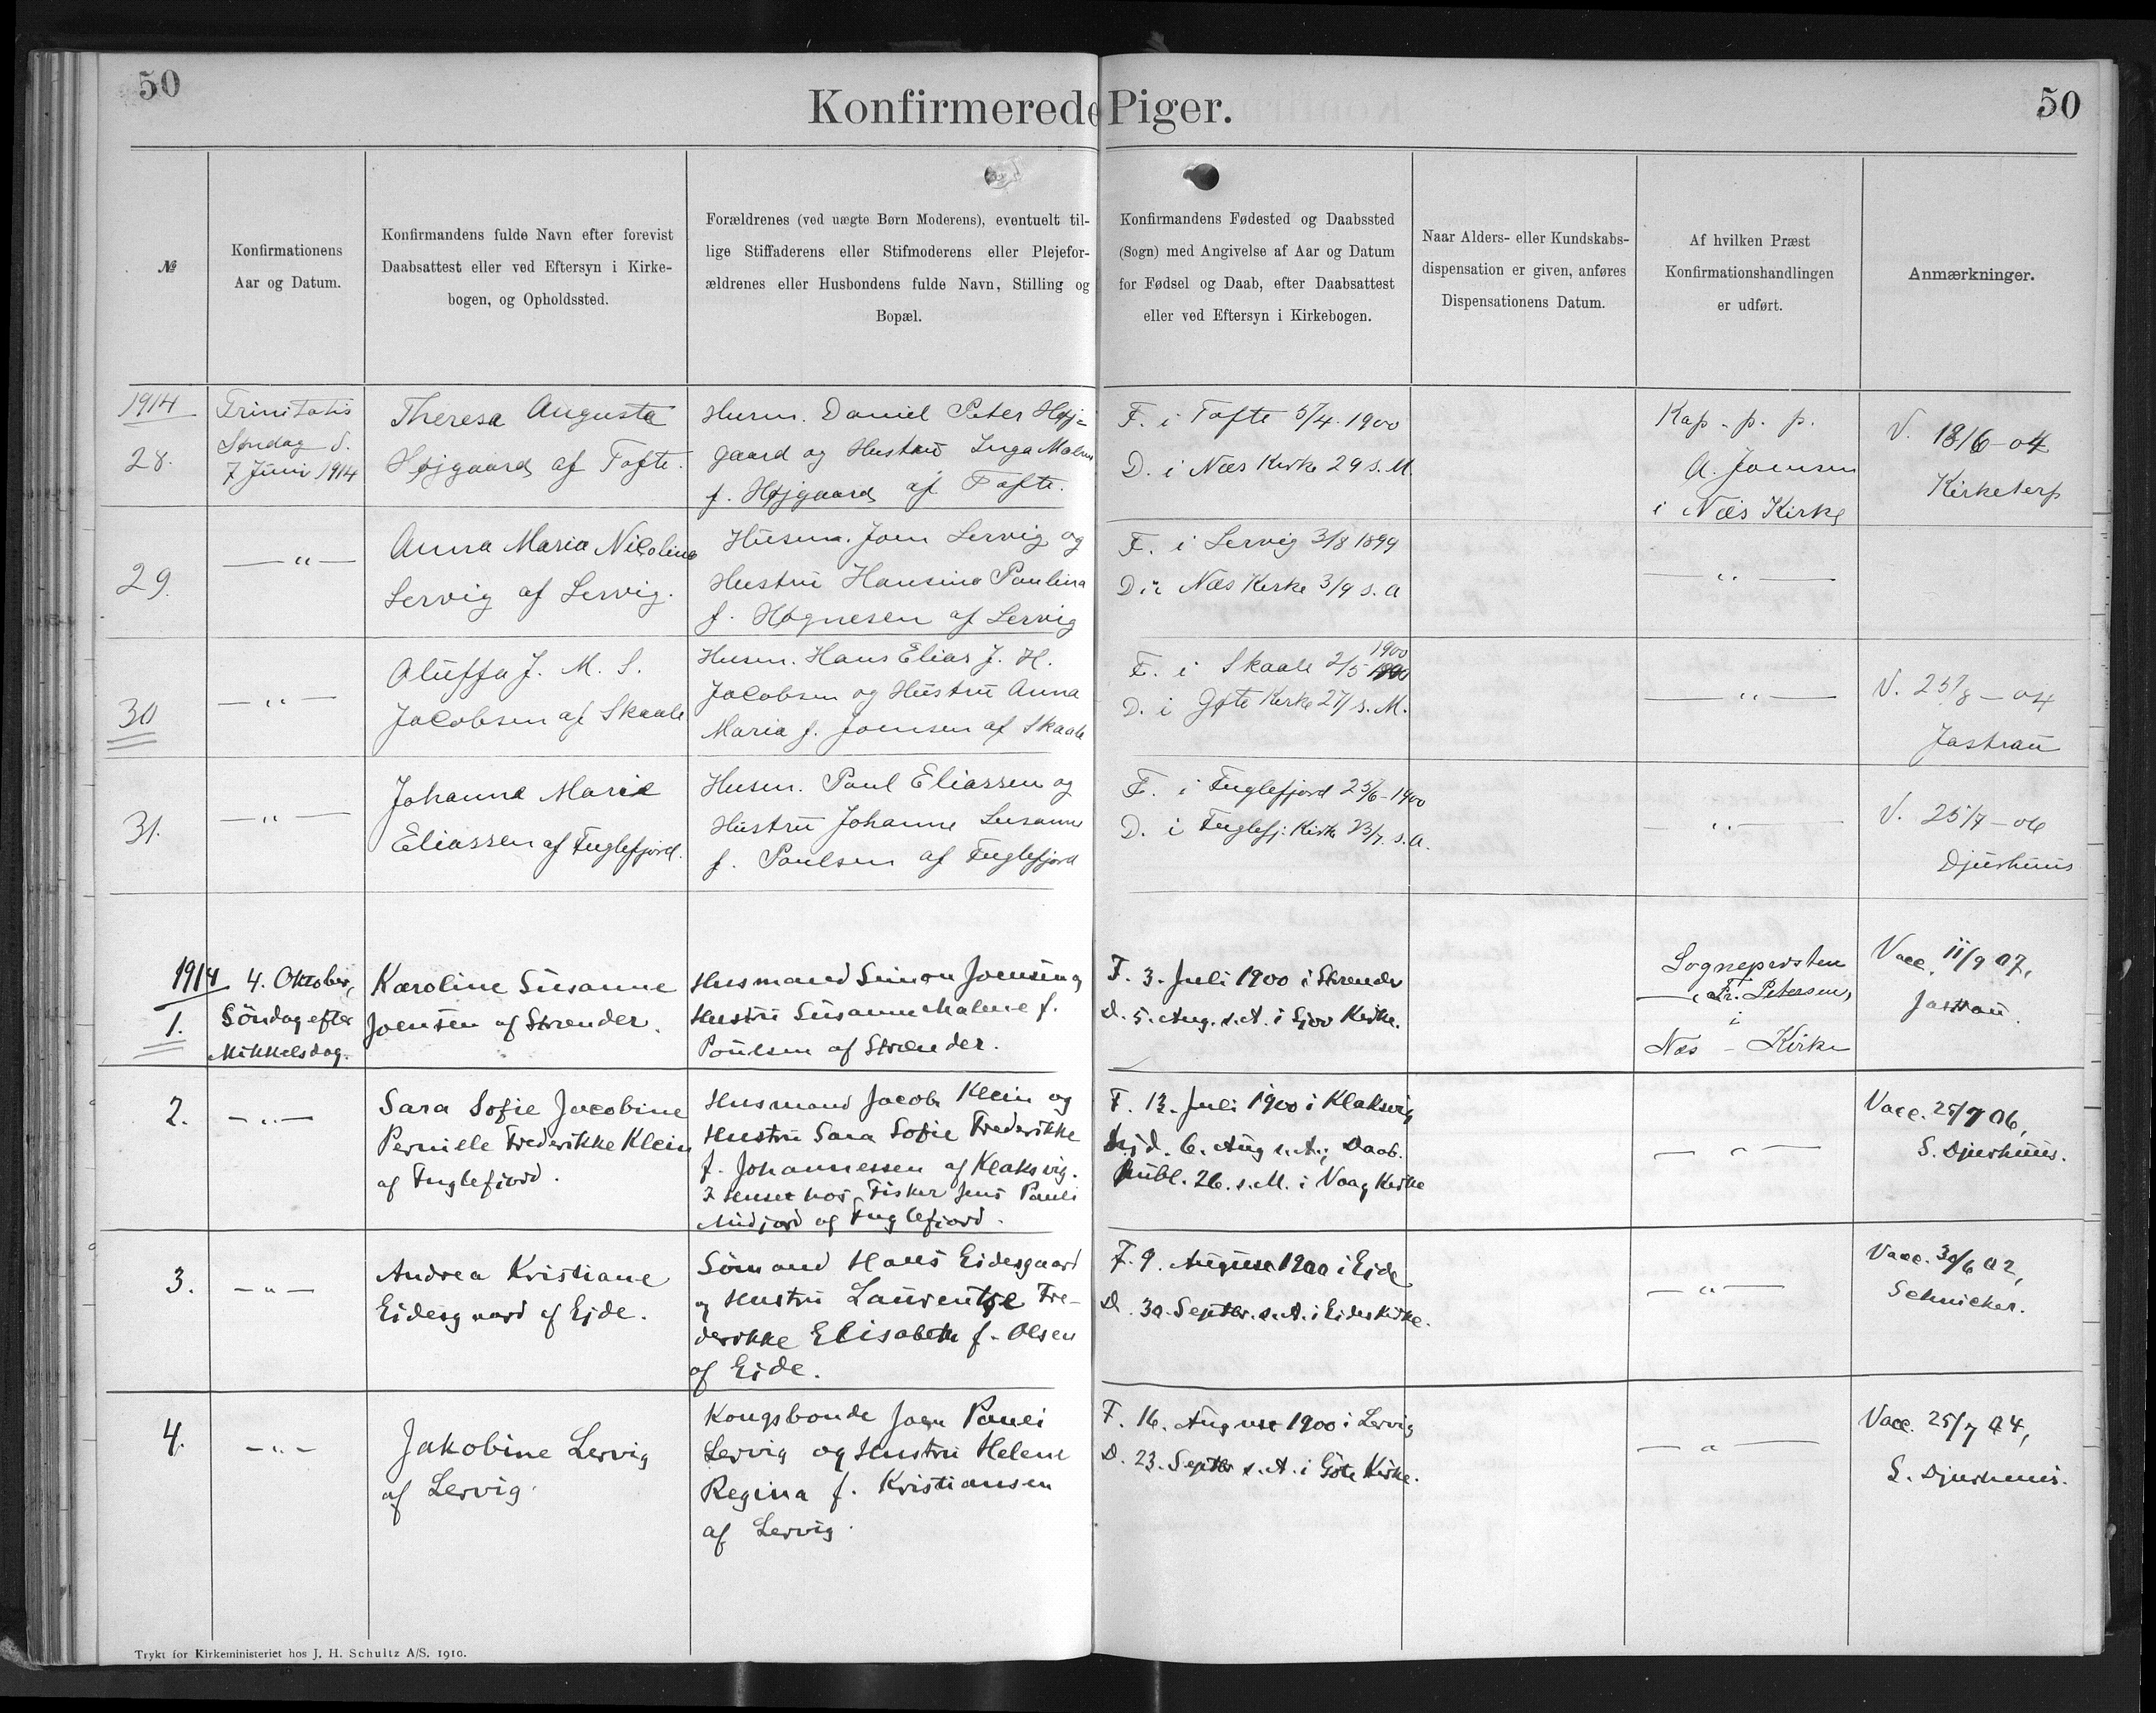 50
Konfirmerede Piger.
50
№
Konfirmationens
Aar og Datum.
Konfirmandens fulde Navn efter forevist
Daabsattest eller ved Eftersyn i Kirke-
bogen, og Opholdssted.
Forældrenes (ved uægte Børn Moderens), eventuelt til-
lige Stiffaderens eller Stifmoderens eller Plejefor-
ældrenes eller Husbondens fulde Navn, Stilling og
Bopæl.
Konfirmandens Fødested og Daabssted
(Sogn) med Angivelse af Aar og Datum
for Fødsel og Daab, efter Daabsattest
eller ved Eftersyn i Kirkebogen.
Naar Alders- eller Kundskabs-
dispensation er given, anføres
Dispensationens Datum.
Af hvilken Præst
Konfirmationshandlingen
er udført.
Anmærkninger.
1914
28.
Trinitatis
Søndag d.
7 Juni 1914
Theresa Augusta
Højgaard af Tofte.
Husm. Daniel Peter Høj=
gaard og Hustru Inga Malene
f. Højgaard af Tofte.
F. i Tofte 5/4. 1900
D. i Næs Kirke 29 s. M.
Kap. p. p.
A. Joensen
i Næs Kirke
V. 18/6-04
Kirketerp
29.
— " —
Anna Maria Nicolina
Lervig af Lervig.
Husm. Joen Lervig og
Hustru Hansina Paulina
f. Høgnesen af Lervig
F. i Lervig 3/8 1899
D. i Næs Kirke 3/9 s. A
— " —
30
— " —
Oluffa J. M. S.
Jacobsen af Skaale
Husm. Hans Elias J. H.
Jacobsen og Hustru Anna
Maria f. Joensen af Skaale
1900
F. i Skaale 2/5
D. i Gøte Kirke 27/ s. M.
— " —
V. 25/8 - 04
Jastrau
31.
— " —
Johanne Marie
Eliassen af Fuglefjord.
Husm. Paul Eliassen og
Hustru Johanne Susanne
f. Poulsen af Fuglefjord
F. i Fuglefjord 25/6 - 1900
D. i Fuglefj. Kirke 23/7. s. A.
— " —
V. 25/7 - 06
Djurhuus
1914
1.
4. Oktober,
Söndag efter
Mikkelsdag.
Karoline Susanne
Joensen af Strænder.
Husmand Simon Joensen og
Hustru Susanne Malene f.
Poulsen af Strænder.
F. 3. Juli 1900 i Strænder
D. 5. Aug. s. A. i Sjov Kirke.
Sognepresten
Fr. Petersen,
i
Næs - Kirke
Vacc. 11/9 07,
Jastrau.
2.
— " —
Sara Sofie Jacobine
Pernille Frederikke Klein
af Fuglefjord.
Husmand Jacob Klein og
Hustru Sara Sofie Frederikke
f. Johannessen af Klaksvig.
I Huset hos Fisker Jens Pauli
Midjord af Fuglefjord.
F. 12. Juli 1900 i Klaksvig
Hjd. 6. Aug s. A.; Daab.
Publ. 26. s. M. i Vaag Kirke
— " —
Vacc. 25/7 06,
S. Djurhuus.
3.
— " —
Andrea Kristiane
Eidesgaard af Ejde.
Sömand Hans Eidesgaard
og Hustru Laurentse Fre-
derikke Elisabeth f. Olsen
af Ejde.
F. 9. August 1900 i Ejde
D. 30. Septbr. s. A. i Eides Kirke.
— " —
Vacc. 30/6 02,
Schnicker.
4.
— " —
Jakobine Lervig
af Lervig.
Kongsbonde Joen Pauli
Lervig og Hustru Helene
Regina f. Kristiansen
af Lervig.
F. 16. August 1900 i Lervig
D. 23. Septbr s. A. i Göte Kirke.
— " —
Vacc. 25/7 04,
S. Djurhuus.
Trykt for Kirkeministeriet hos J. H. Schultz A/S. 1910.